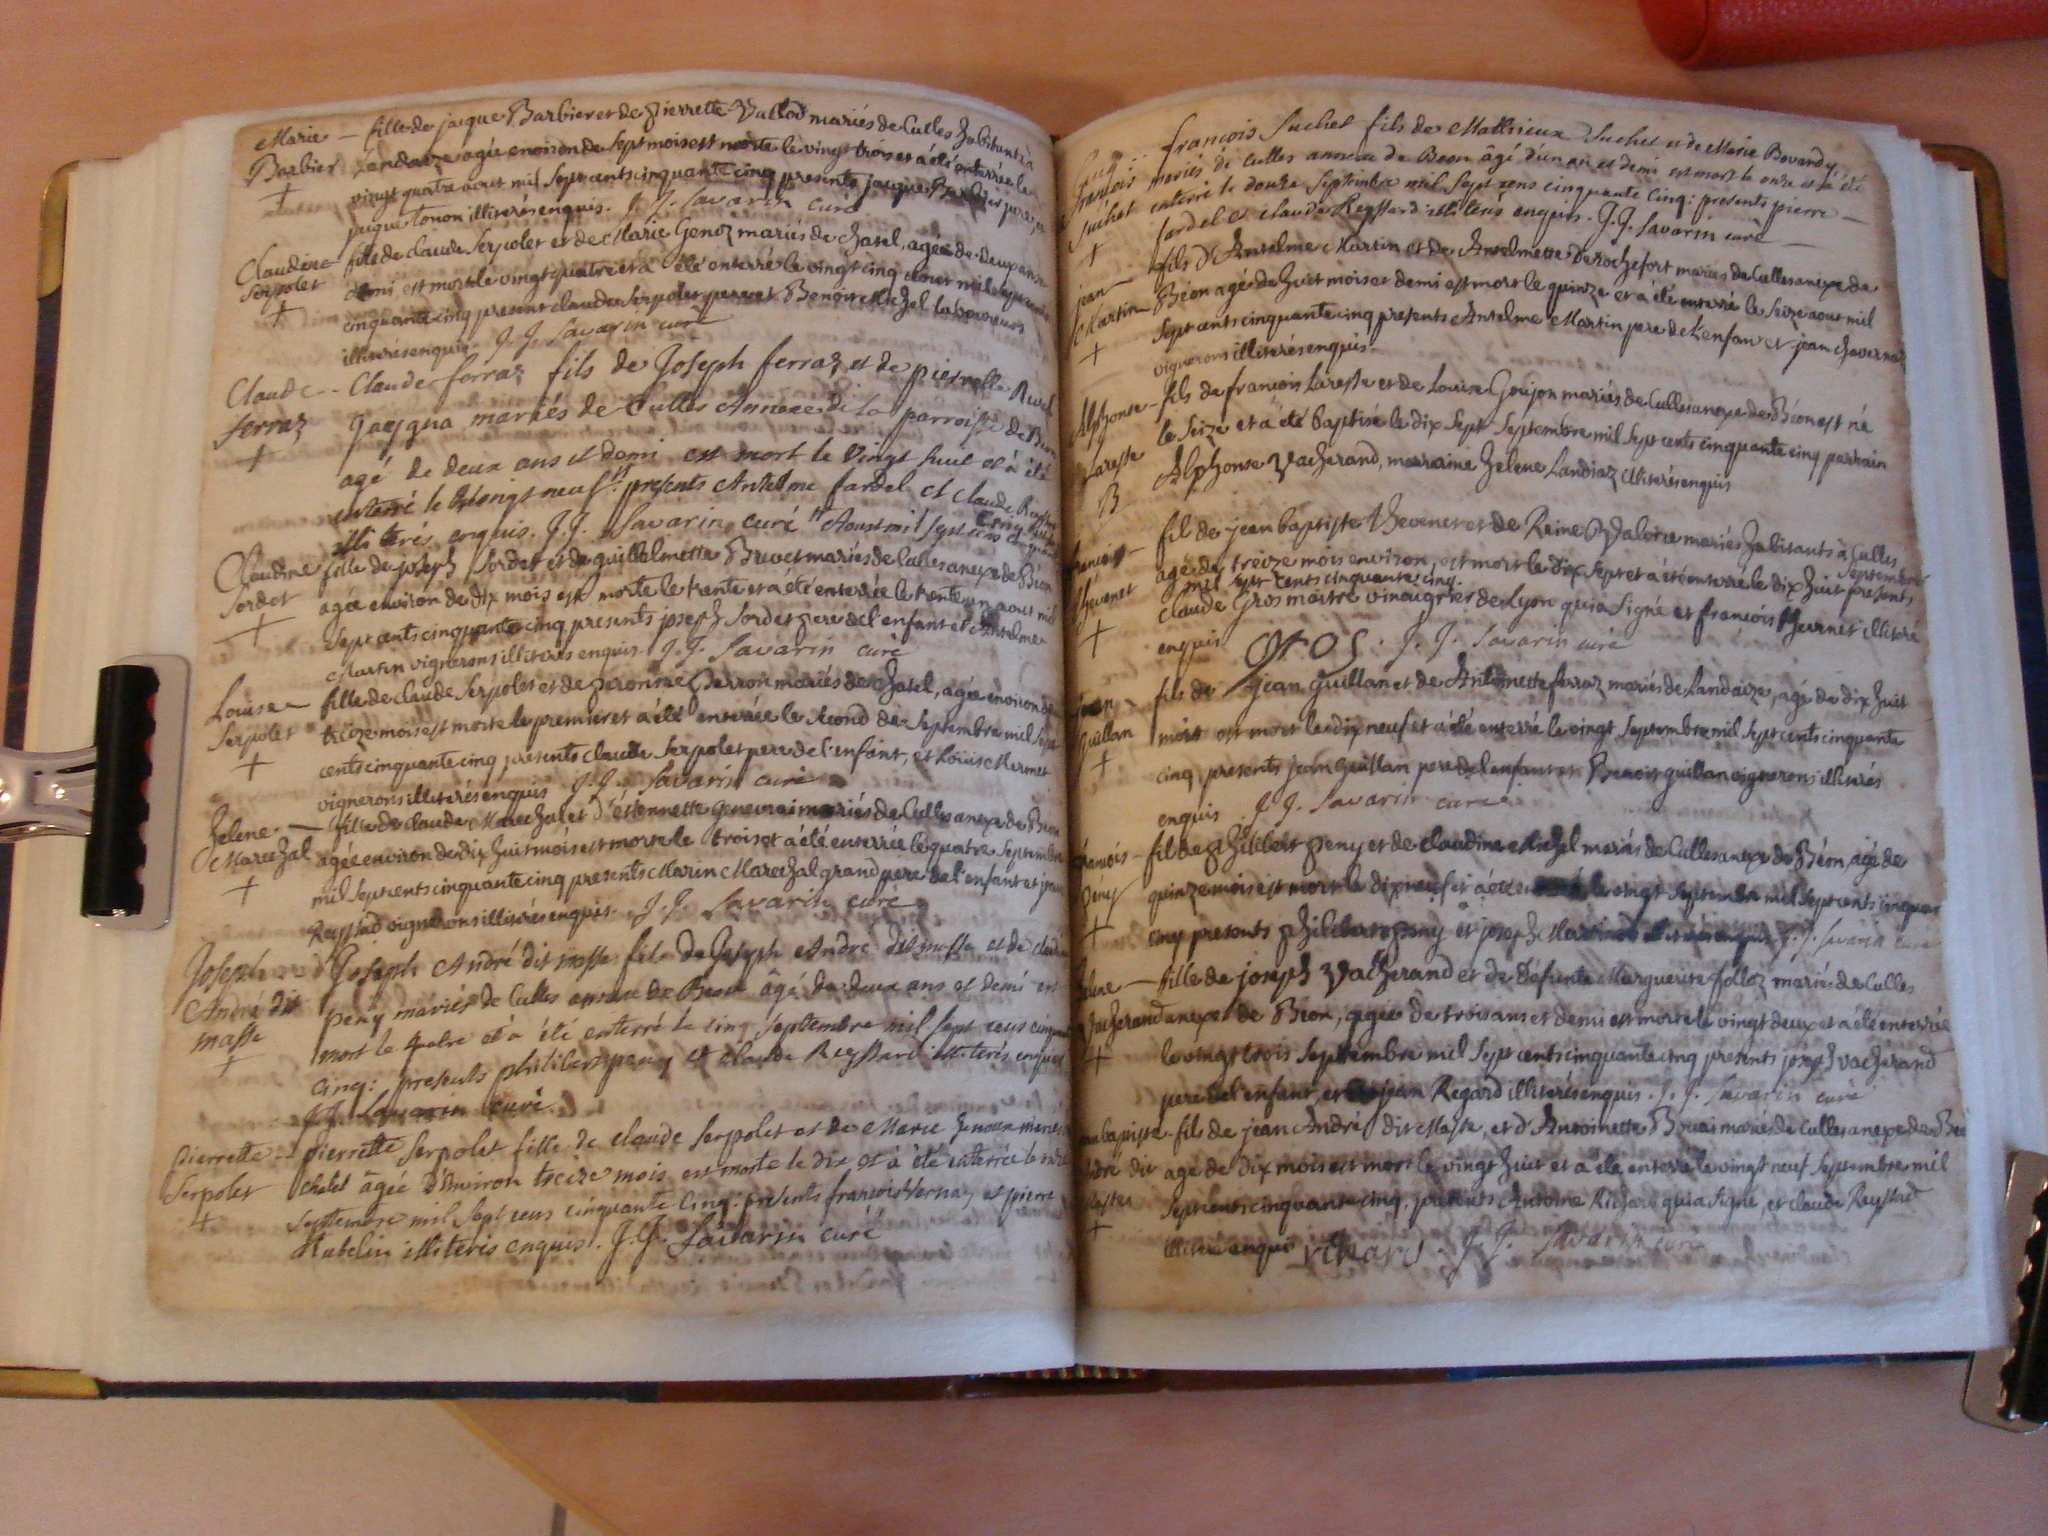 Marie — fille de jacque Barbier et de pierrette Vallod mariés de Culles habitants à
Barbier Landaize agée environ de sept mois est morte le vingt trois et a été enterrée le
vingt quatre aout mil sept cents cinquante cinq presents jacque Barbier pere, et
jacque tonon illiterés enquis. J. J. Savarin curé
Claudine — fille de claude Serpolet et de Marie Genoz mariés de chatel, agée de deux ans
Serpolet demi est mort le vingt quatre et a été enterré le vingt cinq aout mil sept cents
cinquante cinq present claude Serpolet pere et Benoit Michel laboureurs
illiterés enquis. J. J. Savarin curé
Claude -- Claude ferraz fils de Joseph ferraz et de pierrette
ferraz mariés de Culles Annexe de la parroisse de Beon
agé de deux ans et demi est mort le vingt huit et à été
enterré le vingt neuf presents Antelme fardel et claude
illiterés enquis. J. J. Savarin curé Aoust mil sept cens cinquante
Claudine fille de joseph Sordet et de guillelmette Buvet mariés de Culles anexe de Béon
Sordet agée environ de dix mois est morte le trente et a été enterrée le trente un aout mil
sept cents cinquante cinq presents joseph Sordet pere de l'enfant et Antelme
Martin vignerons illiterés enquis J. J. Savarin curé
Louise — fille de claude Serpolet et de peronne perron mariés de chatel, agée environ de
Serpolet treize mois est morte le premier et a été enterrée le second de septembre mil sept
cents cinquante cinq presents claude Serpolet pere de l'enfant, et Louis Mermet
vignerons illiterés enquis J. J. Savarin curé
helene — fille de claude Marechal et d'etiennette Genevrai mariés de Culles anexe de Béon
Marechal agée environ de dix huit mois est morte le trois et a été enterrée le quatre septembre
mil sept cents cinquante cinq presents Marin Marechal grand pere de l'enfant et jean
Reyssad vignerons illiterés enquis. J. J. Savarin curé
Joseph Joseph André dit masse fils de Joseph André dit masse et de claudine
André dit peny mariés de Culles annexe de Beon âgé de deux ans et demi est
masse mort le quatre et à été enterré le cinq septembre mil sept cens cinquante
cinq: presents philibert peny et claude Reyssard illiterés enquis
J. J. Savarin curé
pierrette -- pierrette Serpolet fille de claude Serpolet et de Marie Genoux mariés
Serpolet chatel âgée d'environ treize mois est morte le dix et à été enterrée le onze
septembre mil sept cens cinquante cinq: presents francois Vernay et pierre
Rubelin illiterés enquis. J. J. Savarin curé
françois Suchet fils de Matthieux Suchet et de Marie Bovardy
francois mariés de Culles annexe de Beon âgé d'un an et demi est mort le onze et à été
Suchet enterré le douze septembre mil sept cens cinquante cinq: presents pierre —
fardel et claude Reyssard illiterés enquis. J. J. Savarin curé —
jean — fils d'Antelme Martin et de Antelmette Derochefort mariés de Culles anexe de
Martin Béon agé de huit mois et demi est mort le quinze et a été enterré le seize aout mil
sept cents cinquante cinq presents Antelme Martin pere de l'enfant et jean
vignerons illiterés enquis.
Alphonse — fils de francois Laresse et de Louise Goujon mariés de Culles anexe de Béon est né
Laresse le seize et a été baptisé le dix sept septembre mil sept cents cinquante cinq parrain
B Alphonse Vacherand, marraine helene Landiaz illiterés enquis
francois — fil de jean baptiste thevenet et de Reine Valorie mariés habitants à Culles
thevenet agé de treize mois environ, est mort le dix sept et a été enterré le dix huit septembre presents
mil sept cents cinquante cinq.
claude Gros maitre vinaigrier de Lyon qui a signé et francois illiteré
enquis gros. J. J. Savarin curé
jean — fils de jean guillan et de Antoinette ferraz mariés de Landaize, agé de dix huit
guillan mois est mort le dix neuf et a été enterré le vingt septembre mil sept cents cinquante
cinq, presents jean guillan pere de l'enfant et Benoit guillan vignerons illiterés
enquis J. J. Savarin curé
francois — fil de philibert peny et de claudine Michel mariés de Culles anexe de Béon, agé de
peny quinze mois est mort le dix neuf et a été le vingt septembre mil sept cents cinquante
cinq presents philibert peny et joseph Martin illiterés enquis J. J. Savarin curé
— fille de joseph Vacherand et de défunte Marguerite folloz mariés de Culles
Vacherand anexe de Béon, agée de trois ans et demi est morte le vingt deux et a été enterrée
le vingt trois septembre mil sept cents cinquante cinq presents joseph vacherand
pere de l'enfant, et jean Regard illiterés enquis. J. J. Savarin curé
baptiste fils de jean André dit Masse, et d'Antoinette Bovai mariés de Culles anexe de Béon
André dit agé de dix mois est mort le vingt huit et a été enterré le vingt neuf septembre mil
Masse sept cents cinquante cinq, presents Antoine Richard qui a signé, et claude Reyssad
illiteré enquis richard. J. J. Savarin curé